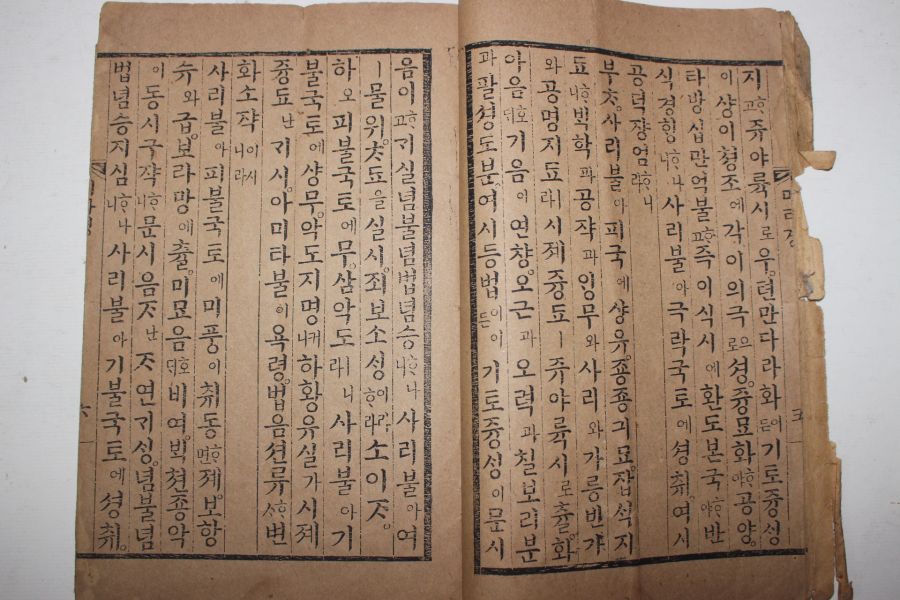 지ᄒᆞ고 쥬야륙시로 우텬만다라화이든 기토즁ᄉᆡᆼ
이 샹이쳥조에 각이의극으로 셩즁묘화ᄒᆞ야 공양
타방십만억불ᄒᆞ고 즉이식시에 환도본국ᄒᆞ야 반
식경ᄒᆡᆼᄒᆞ나니 사리불아 극락국토에 셩ᄎᆔ여시
공덕쟝엄ᄒᆞ니라
부ᄎᆞ사리불아 피국에 샹유죵죵긔묘잡ᄉᆡᆨ지
됴ᄒᆞ니 ᄇᆡᆨ학과 공쟉과 잉무와 사리와 가릉빈가
와 공명지됴라 시졔즁됴ㅣ 쥬야륙시로 츌화
아음호ᄃᆡ 기음이 연챵오근과 오력과 칠보리분
과 팔셩도분여시등법이든 이 기토즁ᄉᆡᆼ이 문시
五
음이ᄒᆞ고 ᄀᆡ실념불념법념승ᄒᆞ나니 사리불아 여
ㅣ 물위ᄎᆞ됴을 실시죄보소ᄉᆡᆼ이라ᄒᆞ라 소이ᄌᆞ
하오 피불국토에 무삼악도라니 사리불아 기
불국토에 샹무악도지명 하황유실가 시졔
즁됴난 ᄀᆡ시아미타불이 욕령법음션류ᄒᆞ사 변
화소쟉이시니라
사리불아 피불국토에 미풍이 ᄎᆔ동ᄒᆞ면 졔보항
슈와 급보라망에 츌미묘음호ᄃᆡ 비여ᄇᆡᆨ쳔죵악
이 동시구쟉ᄒᆞ나니 문시음ᄌᆞ난 ᄌᆞ연ᄀᆡᄉᆡᆼ념불념
법념승지심ᄒᆞ나니 사리불아 기불국토에 셩ᄎᆔ
六